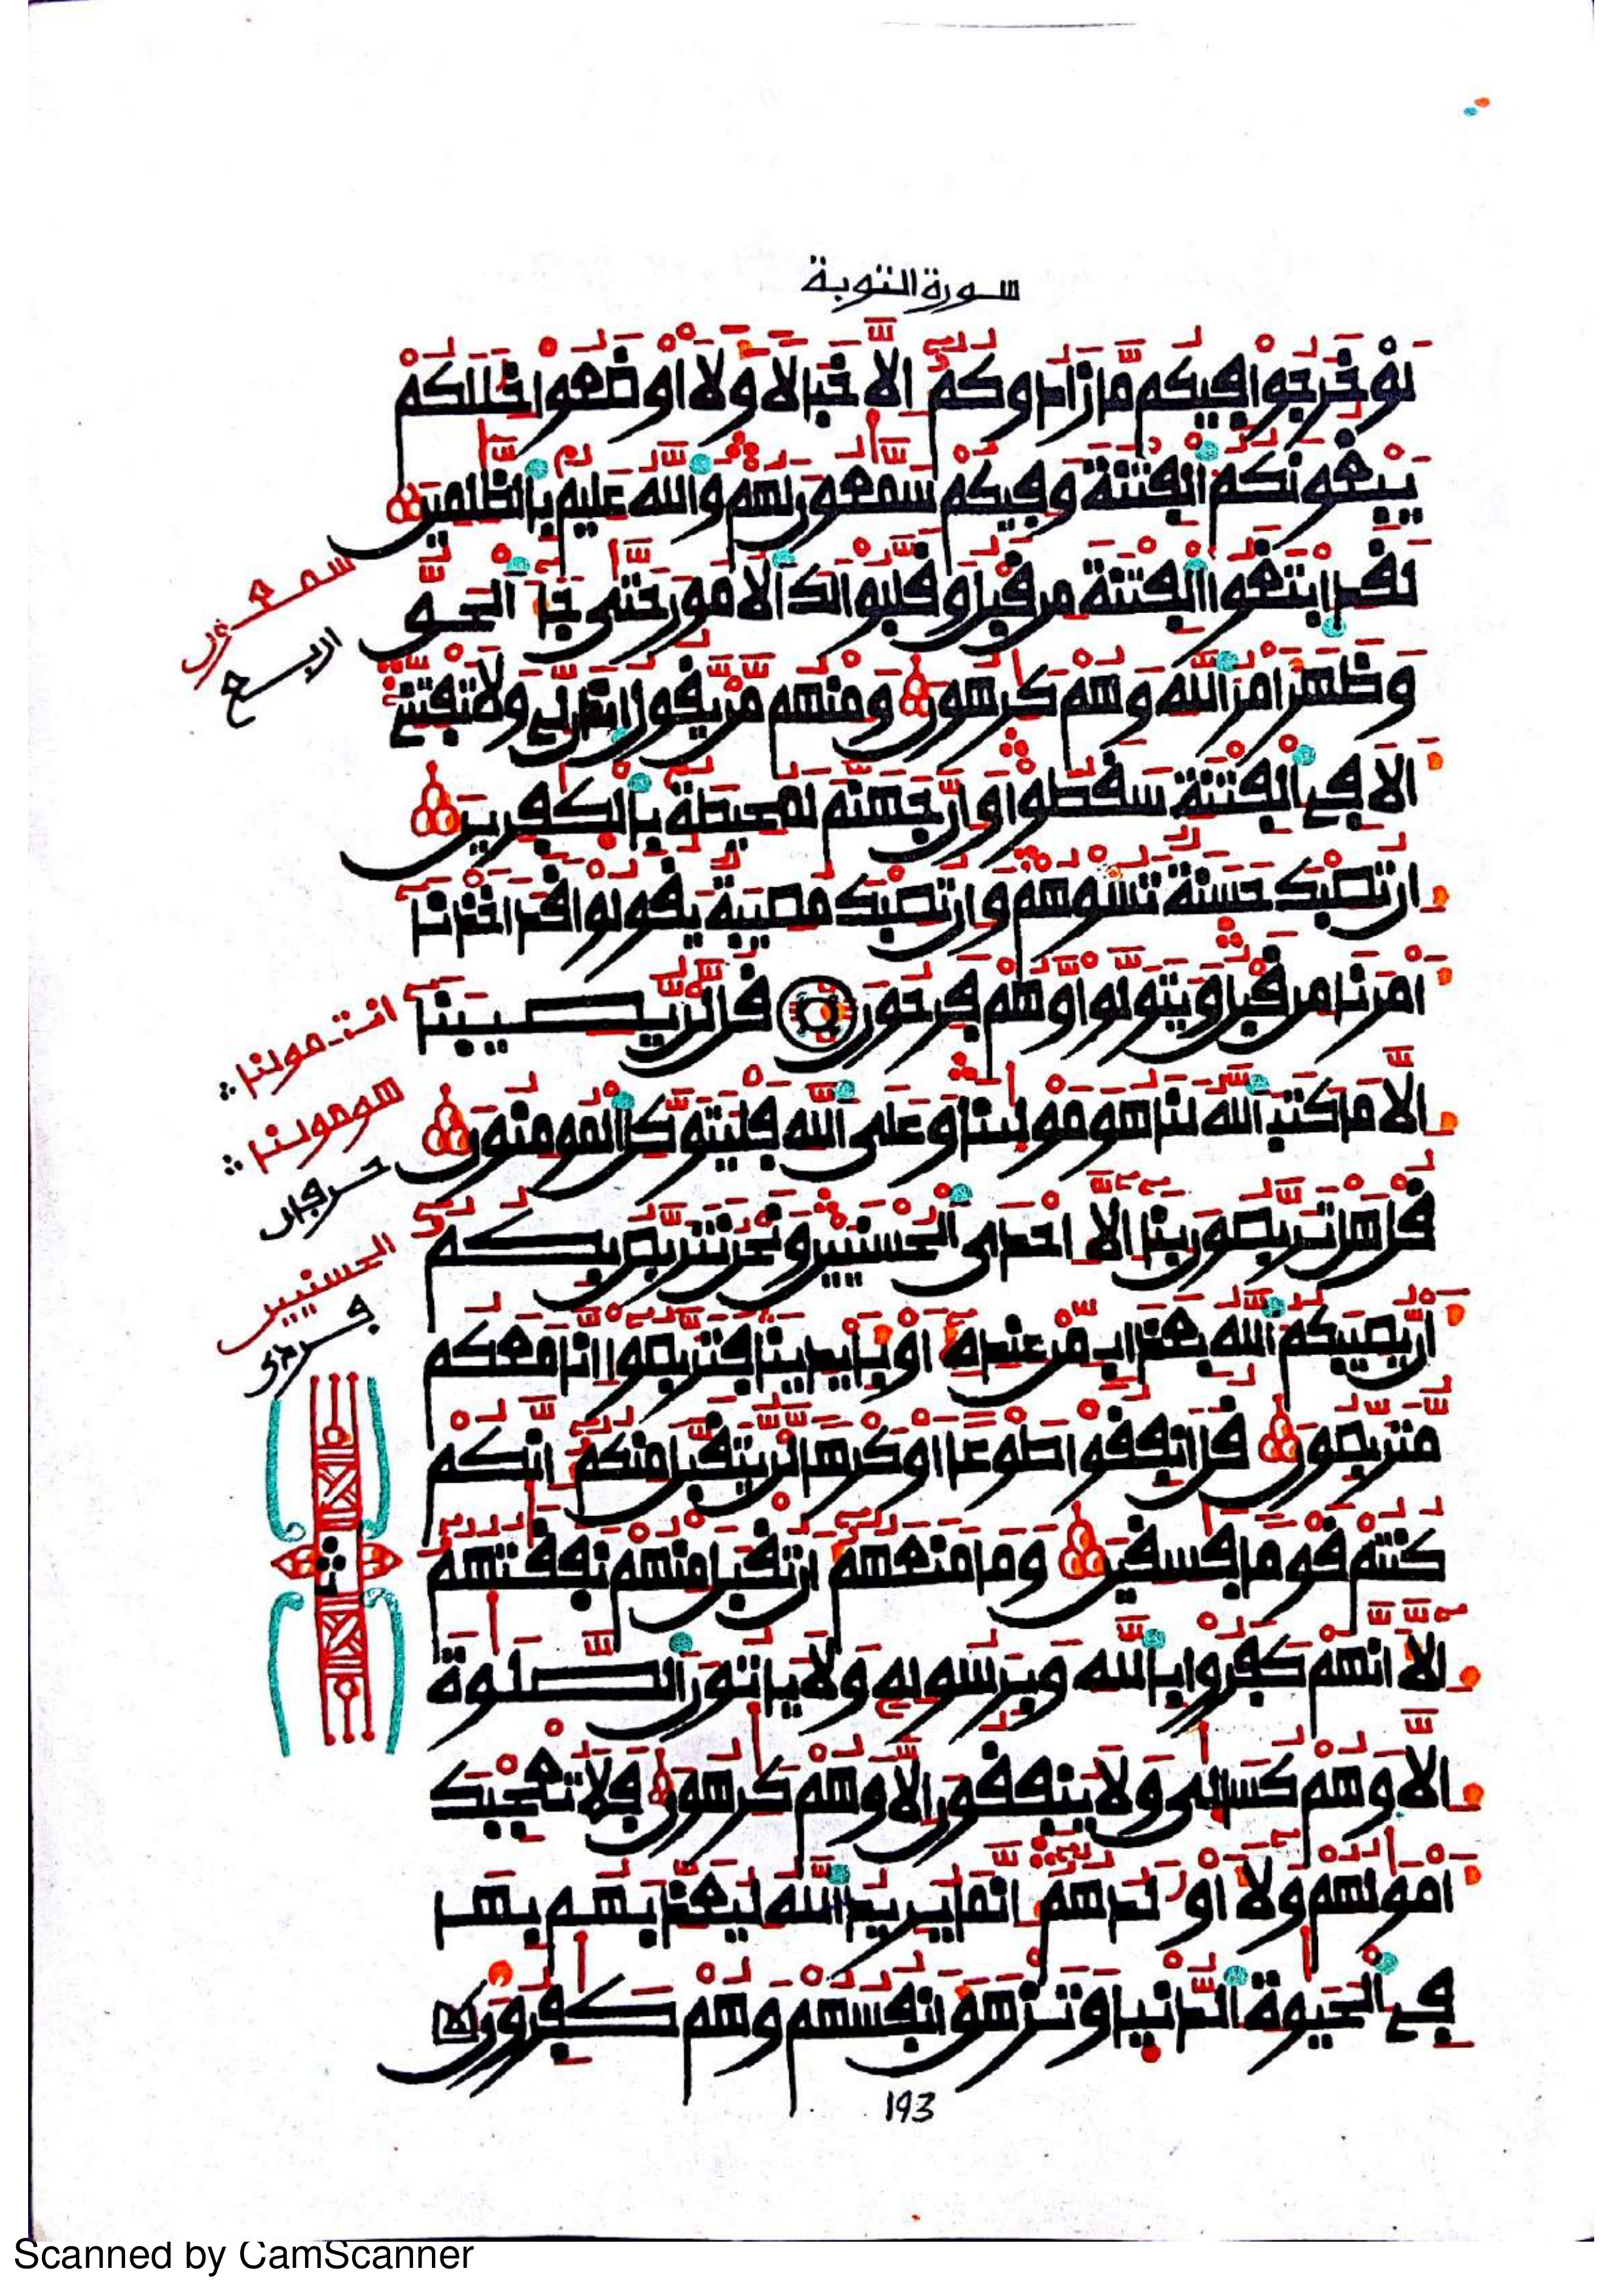 سورة التوبة
لوْ خَرجوا فيكم مّا زادوكمُۥ إلّا خبالا ولَأاوضعوا خلَلكمْ
يبغونكم الفتنة وفيكم سمّعون لهم والله عليم بالظلمين
سمعون
لقد ابتغوا الفتنة من قبل وقلبوا لك الامور حتى جا الحق
اربع
وظهر امر الله وهم كرهون ومنهم من يقول ايذن لي ولا تفتني
الا في الفتنة سقطوا وان جهنم لمحيطة بالكفرين
ان تصبك حسنة تسوهم وان تصبك مصيبة يقولوا قد اخذنا
امرنا من قبل ويتولوا وهم فرحون قل لن يصيبنا
انت مولنا
الا ما كتب الله لنا هو مولنا وعلى الله فليتوكل المومنون
هو مولنا
حرفان
قل هل تربصون بنا الا احدى الحسنيين ونحن نتربص بكم
الحسنيين
ان يصيبكم الله بعذاب من عنده او بايدينا فتربصوا انا معكم
متربصون قل انفقوا طوعا او كرها لن يتقبل منكم انكم
كنتم قوما فسقين وما منعهم ان تقبل منهم نفقتهم
الا انهم كفروا بالله وبرسوله ولا ياتون الصلوة
الا وهم كسالى ولا ينفقون الا وهم كرهون فلا تعجبك
امولهم ولا اولدهم انما يريد الله ليعذبهم بها
في الحيوة الدنيا وتزهق انفسهم وهم كفرون
193
Scanned by CamScanner